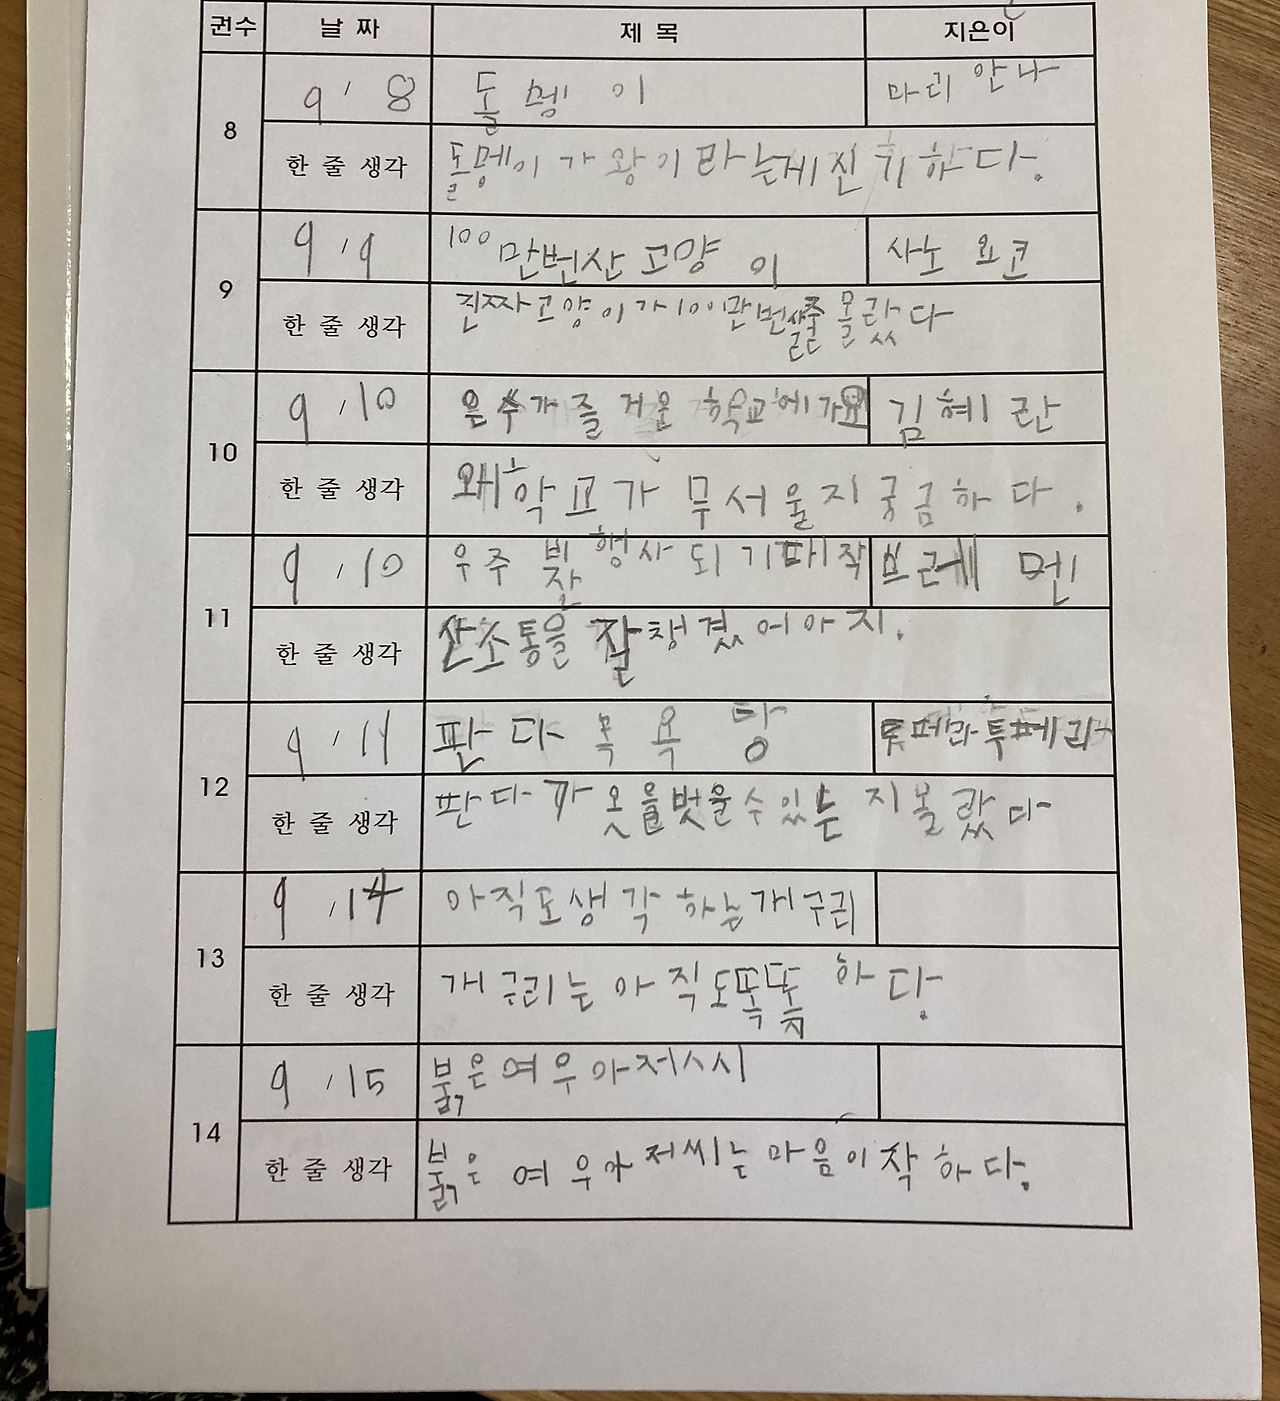 권수 날 짜 제 목 지은이
8 9 ' 8 돌멩이 마리 안나
한 줄 생각 돌멩이 가 왕이 라는게 진 하다.
9 9 ' 9 100만번산 고양이 사노 요코
한 줄 생각 진짜고양이가100만번 줄 몰랐다
10 9 , 10 은수가 즐거운 학교에가요 김혜란
한 줄 생각 왜 학교가 무서울지 궁금하다.
11 9 , 10 우주 비행사 되기 대작
한 줄 생각 산소통을 잘 챙겼어야지.
12 9 , 11 판다 목욕탕 투페라투페라
한 줄 생각 판다가 옷을벗을수있는지몰랐다
13 9 , 14 아직도생각하는개구리
한 줄 생각 개구리는 아직도똑똑하다.
14 9 , 15 붉은여우아저시
한 줄 생각 붉은 여우아저씨는 마음이 착하다.